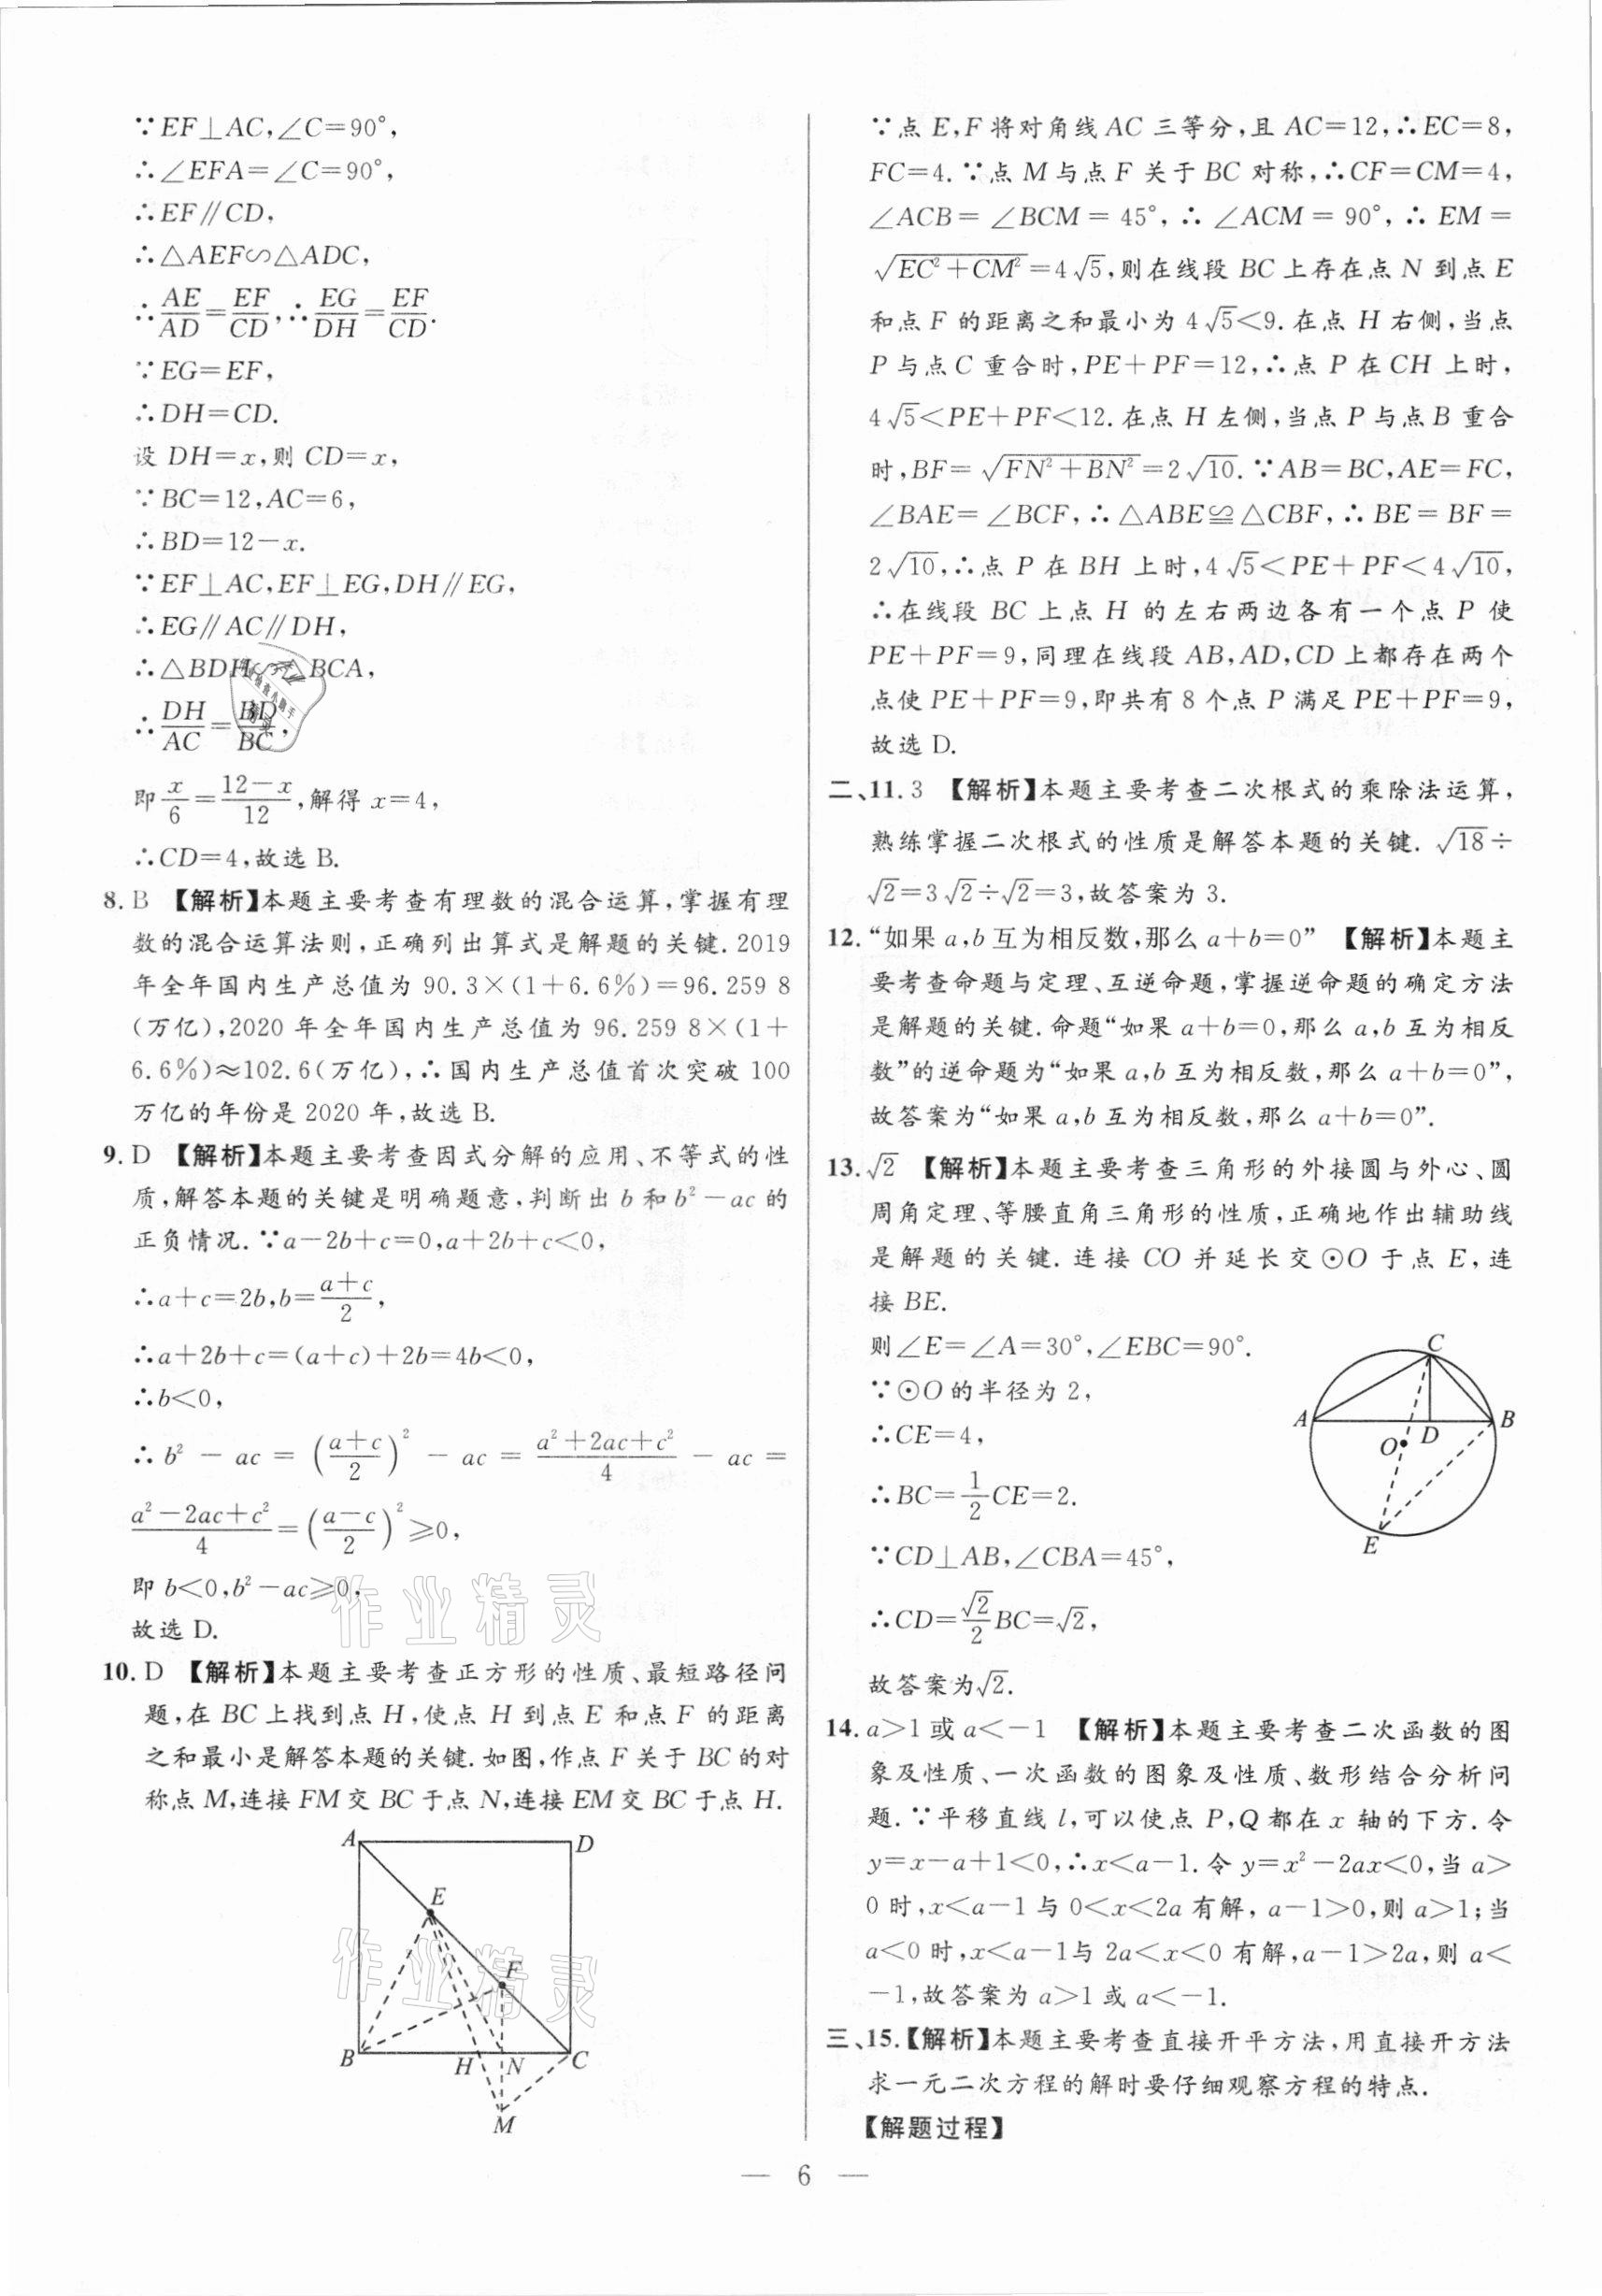 ∵EF⊥AC,∠C=90°,
∴∠EFA=∠C=90°,
∴EF∥CD,
∴△AEF∽△ADC,
∴AE/AD=EF/CD,∴EG/DH=EF/CD.
∵EG=EF,
∴DH=CD.
设 DH=x,则 CD=x,
∵BC=12,AC=6,
∴BD=12-x.
∵EF⊥AC,EF⊥EG,DH∥EG,
∴EG∥AC∥DH,
∴△BDH∽△BCA,
∴DH/AC=BD/BC,
即x/6=(12-x)/12,解得 x=4,
∴CD=4,故选 B.
8. B 【解析】本题主要考查有理数的混合运算,掌握有理
数的混合运算法则,正确列出算式是解题的关键.2019
年全年国内生产总值为 90.3×(1+6.6%)=96.259 8
(万亿),2020 年全年国内生产总值为 96.259 8×(1+
6.6%)≈102.6(万亿),∴国内生产总值首次突破 100
万亿的年份是 2020 年,故选 B.
9. D 【解析】本题主要考查因式分解的应用、不等式的性
质,解答本题的关键是明确题意,判断出 b 和 b²-ac 的
正负情况.∵a-2b+c=0,a+2b+c<0,
∴a+c=2b,b=(a+c)/2,
∴a+2b+c=(a+c)+2b=4b<0,
∴b<0,
∴b²-ac=((a+c)/2)²-ac=(a²+2ac+c²)/4-ac=
(a²-2ac+c²)/4=((a-c)/2)²≥0,
即 b<0,b²-ac≥0,
故选 D.
10. D 【解析】本题主要考查正方形的性质、最短路径问
题,在 BC 上找到点 H,使点 H 到点 E 和点 F 的距离
之和最小是解答本题的关键.如图,作点 F 关于 BC 的对
称点 M,连接 FM 交 BC 于点 N,连接 EM 交 BC 于点 H.
A D
E
F
B H N C
M
∵点 E,F 将对角线 AC 三等分,且 AC=12,∴EC=8,
FC=4.∵点 M 与点 F 关于 BC 对称,∴CF=CM=4,
∠ACB=∠BCM=45°,∴∠ACM=90°,∴EM=
√(EC²+CM²)=4√5,则在线段 BC 上存在点 N 到点 E
和点 F 的距离之和最小为 4√5<9.在点 H 右侧,当点
P 与点 C 重合时,PE+PF=12,∴点 P 在 CH 上时,
4√5<PE+PF<12.在点 H 左侧,当点 P 与点 B 重合
时,BF=√(FN²+BN²)=2√10.∵AB=BC,AE=FC,
∠BAE=∠BCF,∴△ABE≌△CBF,∴BE=BF=
2√10,∴点 P 在 BH 上时,4√5<PE+PF<4√10,
∴在线段 BC 上点 H 的左右两边各有一个点 P 使
PE+PF=9,同理在线段 AB,AD,CD 上都存在两个
点使 PE+PF=9,即共有 8 个点 P 满足 PE+PF=9,
故选 D.
二、11. 3 【解析】本题主要考查二次根式的乘除法运算,
熟练掌握二次根式的性质是解答本题的关键.√18÷
√2=3√2÷√2=3,故答案为 3.
12. “如果 a,b 互为相反数,那么 a+b=0” 【解析】本题主
要考查命题与定理、互逆命题,掌握逆命题的确定方法
是解题的关键.命题“如果 a+b=0,那么 a,b 互为相反
数”的逆命题为“如果 a,b 互为相反数,那么 a+b=0”,
故答案为“如果 a,b 互为相反数,那么 a+b=0”.
13. √2 【解析】本题主要考查三角形的外接圆与外心、圆
周角定理、等腰直角三角形的性质,正确地作出辅助线
是解题的关键.连接 CO 并延长交⊙O 于点 E,连
接 BE.
则∠E=∠A=30°,∠EBC=90°.
∵⊙O 的半径为 2,
∴CE=4,
∴BC=1/2CE=2.
∵CD⊥AB,∠CBA=45°,
∴CD=√2/2BC=√2,
故答案为√2.
C
A B
D
O
E
14. a>1 或 a<-1 【解析】本题主要考查二次函数的图
象及性质、一次函数的图象及性质、数形结合分析问
题.∵平移直线 l,可以使点 P,Q 都在 x 轴的下方.令
y=x-a+1<0,∴x<a-1.令 y=x²-2ax<0,当 a>
0 时,x<a-1 与 0<x<2a 有解,a-1>0,则 a>1;当
a<0 时,x<a-1与 2a<x<0 有解,a-1>2a,则 a<
-1,故答案为 a>1 或 a<-1.
三、15.【解析】本题主要考查直接开平方法,用直接开方法
求一元二次方程的解时要仔细观察方程的特点.
【解题过程】
— 6 —
作业精灵
作业精灵